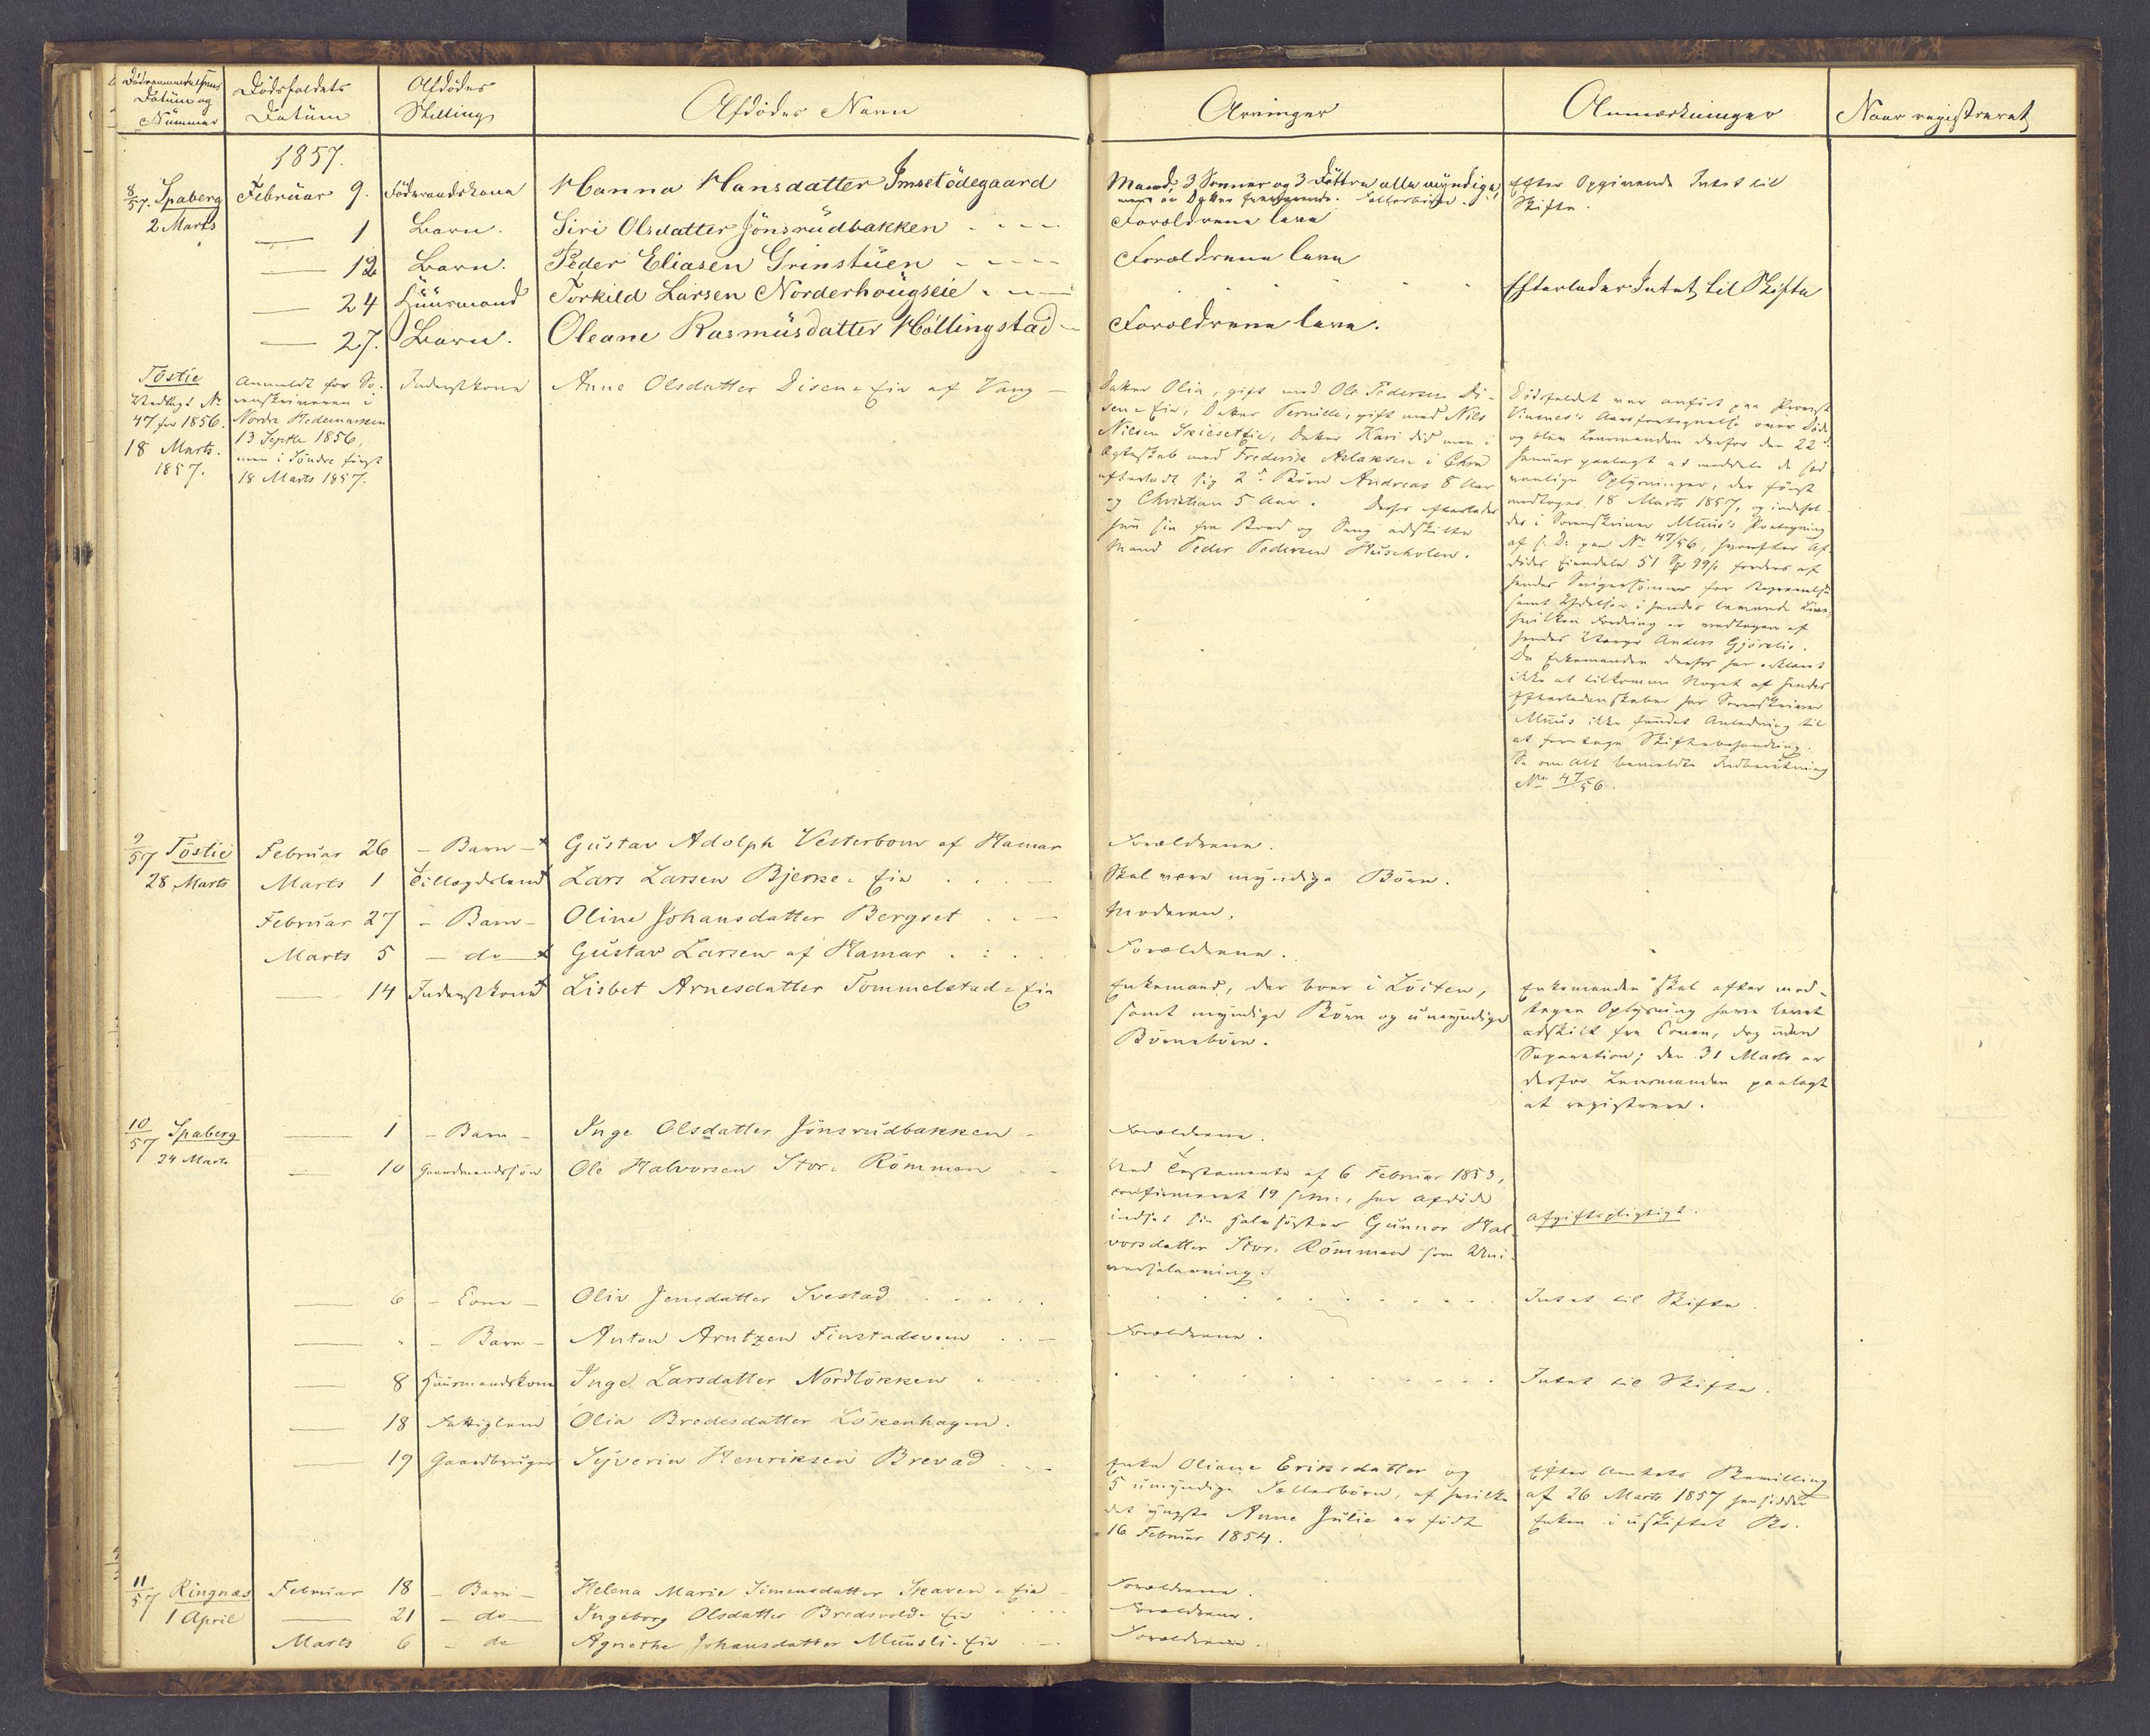 Dødsanmeldelsens Datum og Nummer
Dødsfaldets Datum
Afdødes Stilling
Afdødes Navn
Arvinger
Anmærkninger
Naar registreret
1857.
8/57. Spaberg Februar 9. Føderaadskone Hanna Hansdatter Imsetödegaard Mand, 3 Sønner og 3 Døttre alle myndige, Efter Opgivende Intet til
2 Marts Skifte.
1 Barn. Siri Olsdatter Jönsrüdbakken Forældrene leve
12 Barn. Peder Eliasen Grinstüen Forældrene leve
24 Huusmand Torkild Larsen Norderhougseie Efterlader Intet til Skifte
27. Barn. Oleane Rasmüsdatter Höllingstad Forældrene leve.
Töstie
Vedlagt No
47 for 1856.
18 Marts.
1857.
Anmeldt for So-
renskriveren i
Nordre Hedemarken
13 Septbr 1856,
men i Söndre først
18 Marts 1857.
Inderstkone
Anne Olsdatter Disen-Eie af Vang
Datter Olia, gift med Ole Pedersen Di-
sen-Eie, Datter Pernille, gift med Nils
Nilsen Skieseteie, Datter Kari død men i
Ægteskab med Frederik Aslaksen i Chra
efterladt sig 2de Børn Andreas 8 Aar
og Christian 5 Aar. Derhos efterlader
hun sin fra Bord og Seng adskilte
Mand Peder Pedersen Huscholen.
Dødsfaldet var anført paa Provst
Aarsfortegnelse over Døde
og blev Lensmanden derfor den 22de
Januar paalagt at meddele de sæd-
vanlige Oplysninger, der først
modtoges 18 Marts 1857, og indehol-
des i Sorenskriver Muus's Paategning
af s. D. paa No 47/56, hvorefter Af-
dødes Eiendele 51 Spd 99 s fordres af
hendes Svigersønner for Begravelse
samt Ydelser i hendes levende Live,
hvilken Fordring er vedtagen af
hendes Værge Anders Gjörslie.
Da Enkemanden derhos har erklæret
ikke at tilkomme Noget af hendes
Efterladenskaber har Sorenskriver
Muus ikke fundet Anledning til
at foretage Skiftebehandling.
Se om Alt bemeldte Indberetning
No 47/56.
9/57 Töstie Februar 26 Barn Gustav Adolph Vesterbom af Hamar Forældrene.
28 Marts Marts 1 Tillægdslem Lars Larsen Bjerke-Eie Skal være myndige Börn.
Februar 27 Barn Oline Johansdatter Bergset Moderen.
Marts 5 do Gustav Larsen af Hamar Forældrene.
14 Inderstkone Lisbet Arnesdatter Tommelstad-Eie
Enkemand, der boer i Löiten,
samt myndige Börn og umyndige
Börnebörn.
Enkemanden skal efter mod-
tagen Oplysning have levet
adskilt fra Conen, dog uden
Separation; den 31 Marts er
derfor Lensmanden paalagt
at registrere.
10/57 Spaberg 1 Barn Inge Olsdatter Jönsrudbakken Forældrene.
24 Marts
10 Gaardmandssön Ole Halvorsen Store Römmen
Ved Testamente af 6 Februar 1853,
confirmeret 19 s.M., har Afdöde
indsat sin Halvsöster Gunnor Hal-
vorsdatter Store Römmen som Uni-
versalarving.
Afgiftspligtigt.
6 Cone Oliv Jensdatter Svestad Intet til Skifte.
Barn Anton Arntzen Finstadsveen Forældrene.
8 Huusmandskone Inge Larsdatter Nordlökken Intet til Skifte.
18 Fattiglem Olia Bredesdatter Lökenhagen.
19 Gaardbruger Syverin Henriksen Brevad
Enke Oliane Eriksdatter og
5 umyndige Fællesbörn, af hvilke
det yngste Anne Julie er født
16 Februar 1854.
Efter Amtets Bevilling
af 26 Marts 1857 hensidder
Enken i uskiftet Bo.
11/57 Ringnæs Februar 18 Barn Helena Marie Simensdatter Skaven-Eie Forældrene.
1 April 21 do Ingeborg Olsdatter Bredsvold-Eie Forældrene.
Marts 6 do Agnethe Johansdatter Muusli-Eie Forældrene.